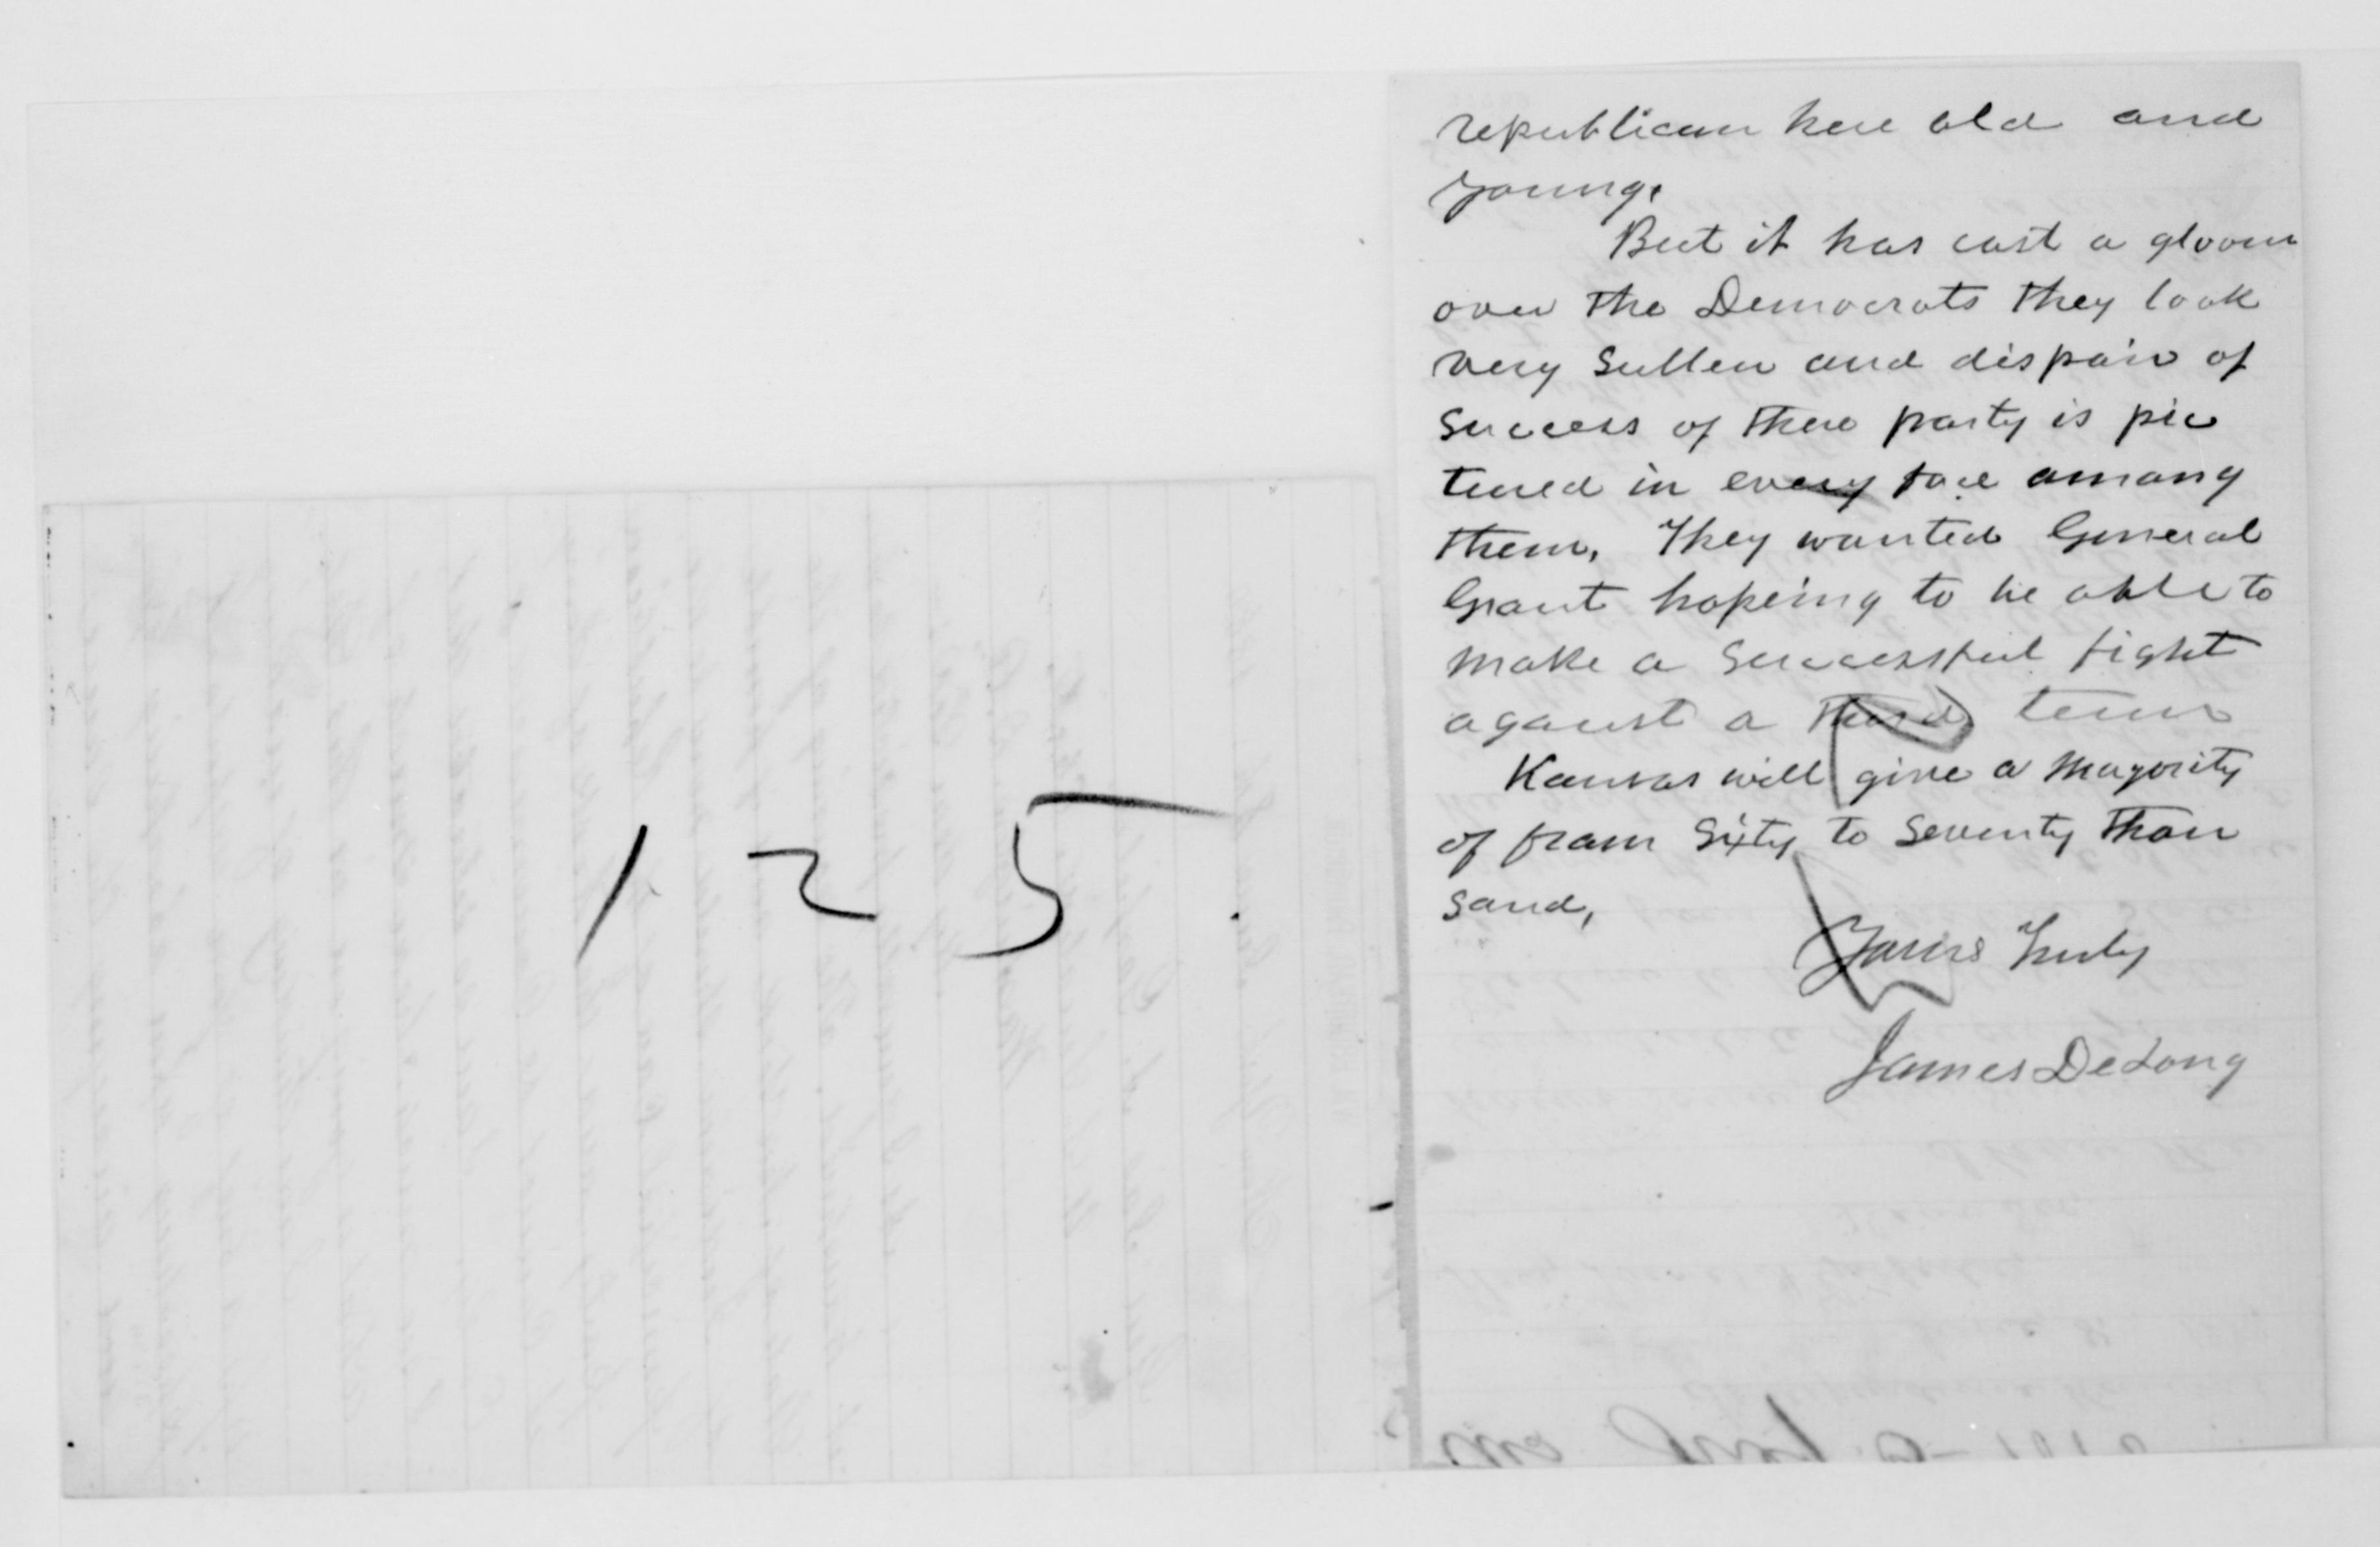 125
republican here old and
young.
But it has cast a gloom
over the Democrats they look
very sullen and dispair of
success of there party is pic
tured in every face among
them, They wanted General
Grant hopeing to be able to
make a successful fight
against a third term
Kansas will give a Majority
of fram Sixty to Seventy Thou
sand,
Yours Truly
James DeLong